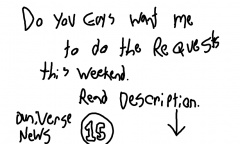 Do You Guys Want me
to do the Requests
this weekend.
Read Description.
Dun.Verse
News 15